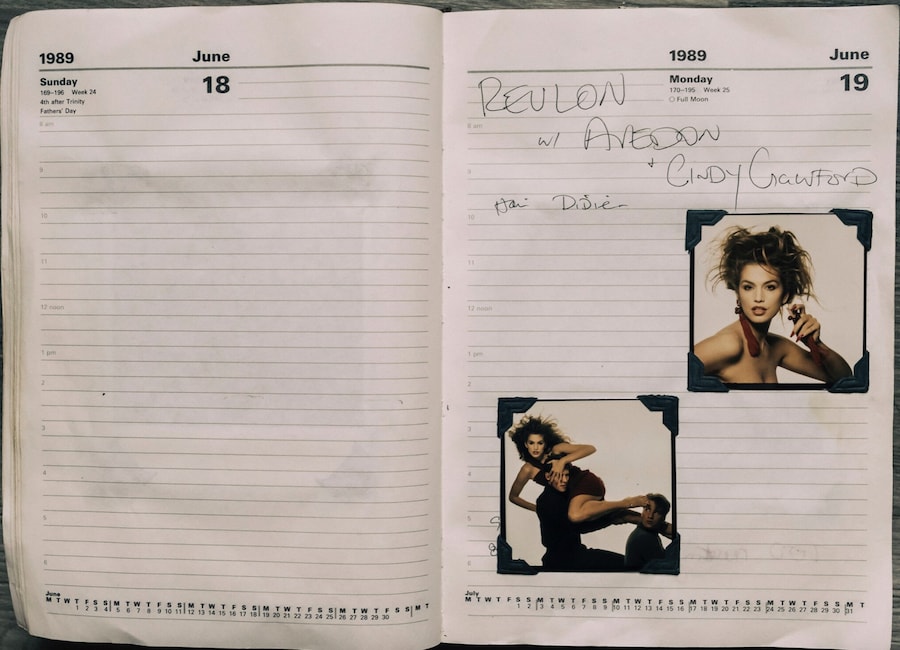 1989 June
Sunday 18
169–196 Week 24
4th after Trinity
Fathers' Day
8 am
9
10
11
12 noon
1 pm
2
3
4
5
6
June
M T W T F S S M T W T F S S M T W T F S S M T W T F S S M T W T F S S M T
1 2 3 4 5 6 7 8 9 10 11 12 13 14 15 16 17 18 19 20 21 22 23 24 25 26 27 28 29 30
1989 June
Monday 19
170–195 Week 25
Full Moon
REVLON
8 am
w/ AVEDON
9
+ CINDY CRAWFORD
DiDiér
10
11
12 noon
1 pm
2
3
4
5
6
July
M T W T F S S M T W T F S S M T W T F S S M T W T F S S M T W T F S S M T
1 2 3 4 5 6 7 8 9 10 11 12 13 14 15 16 17 18 19 20 21 22 23 24 25 26 27 28 29 30 31